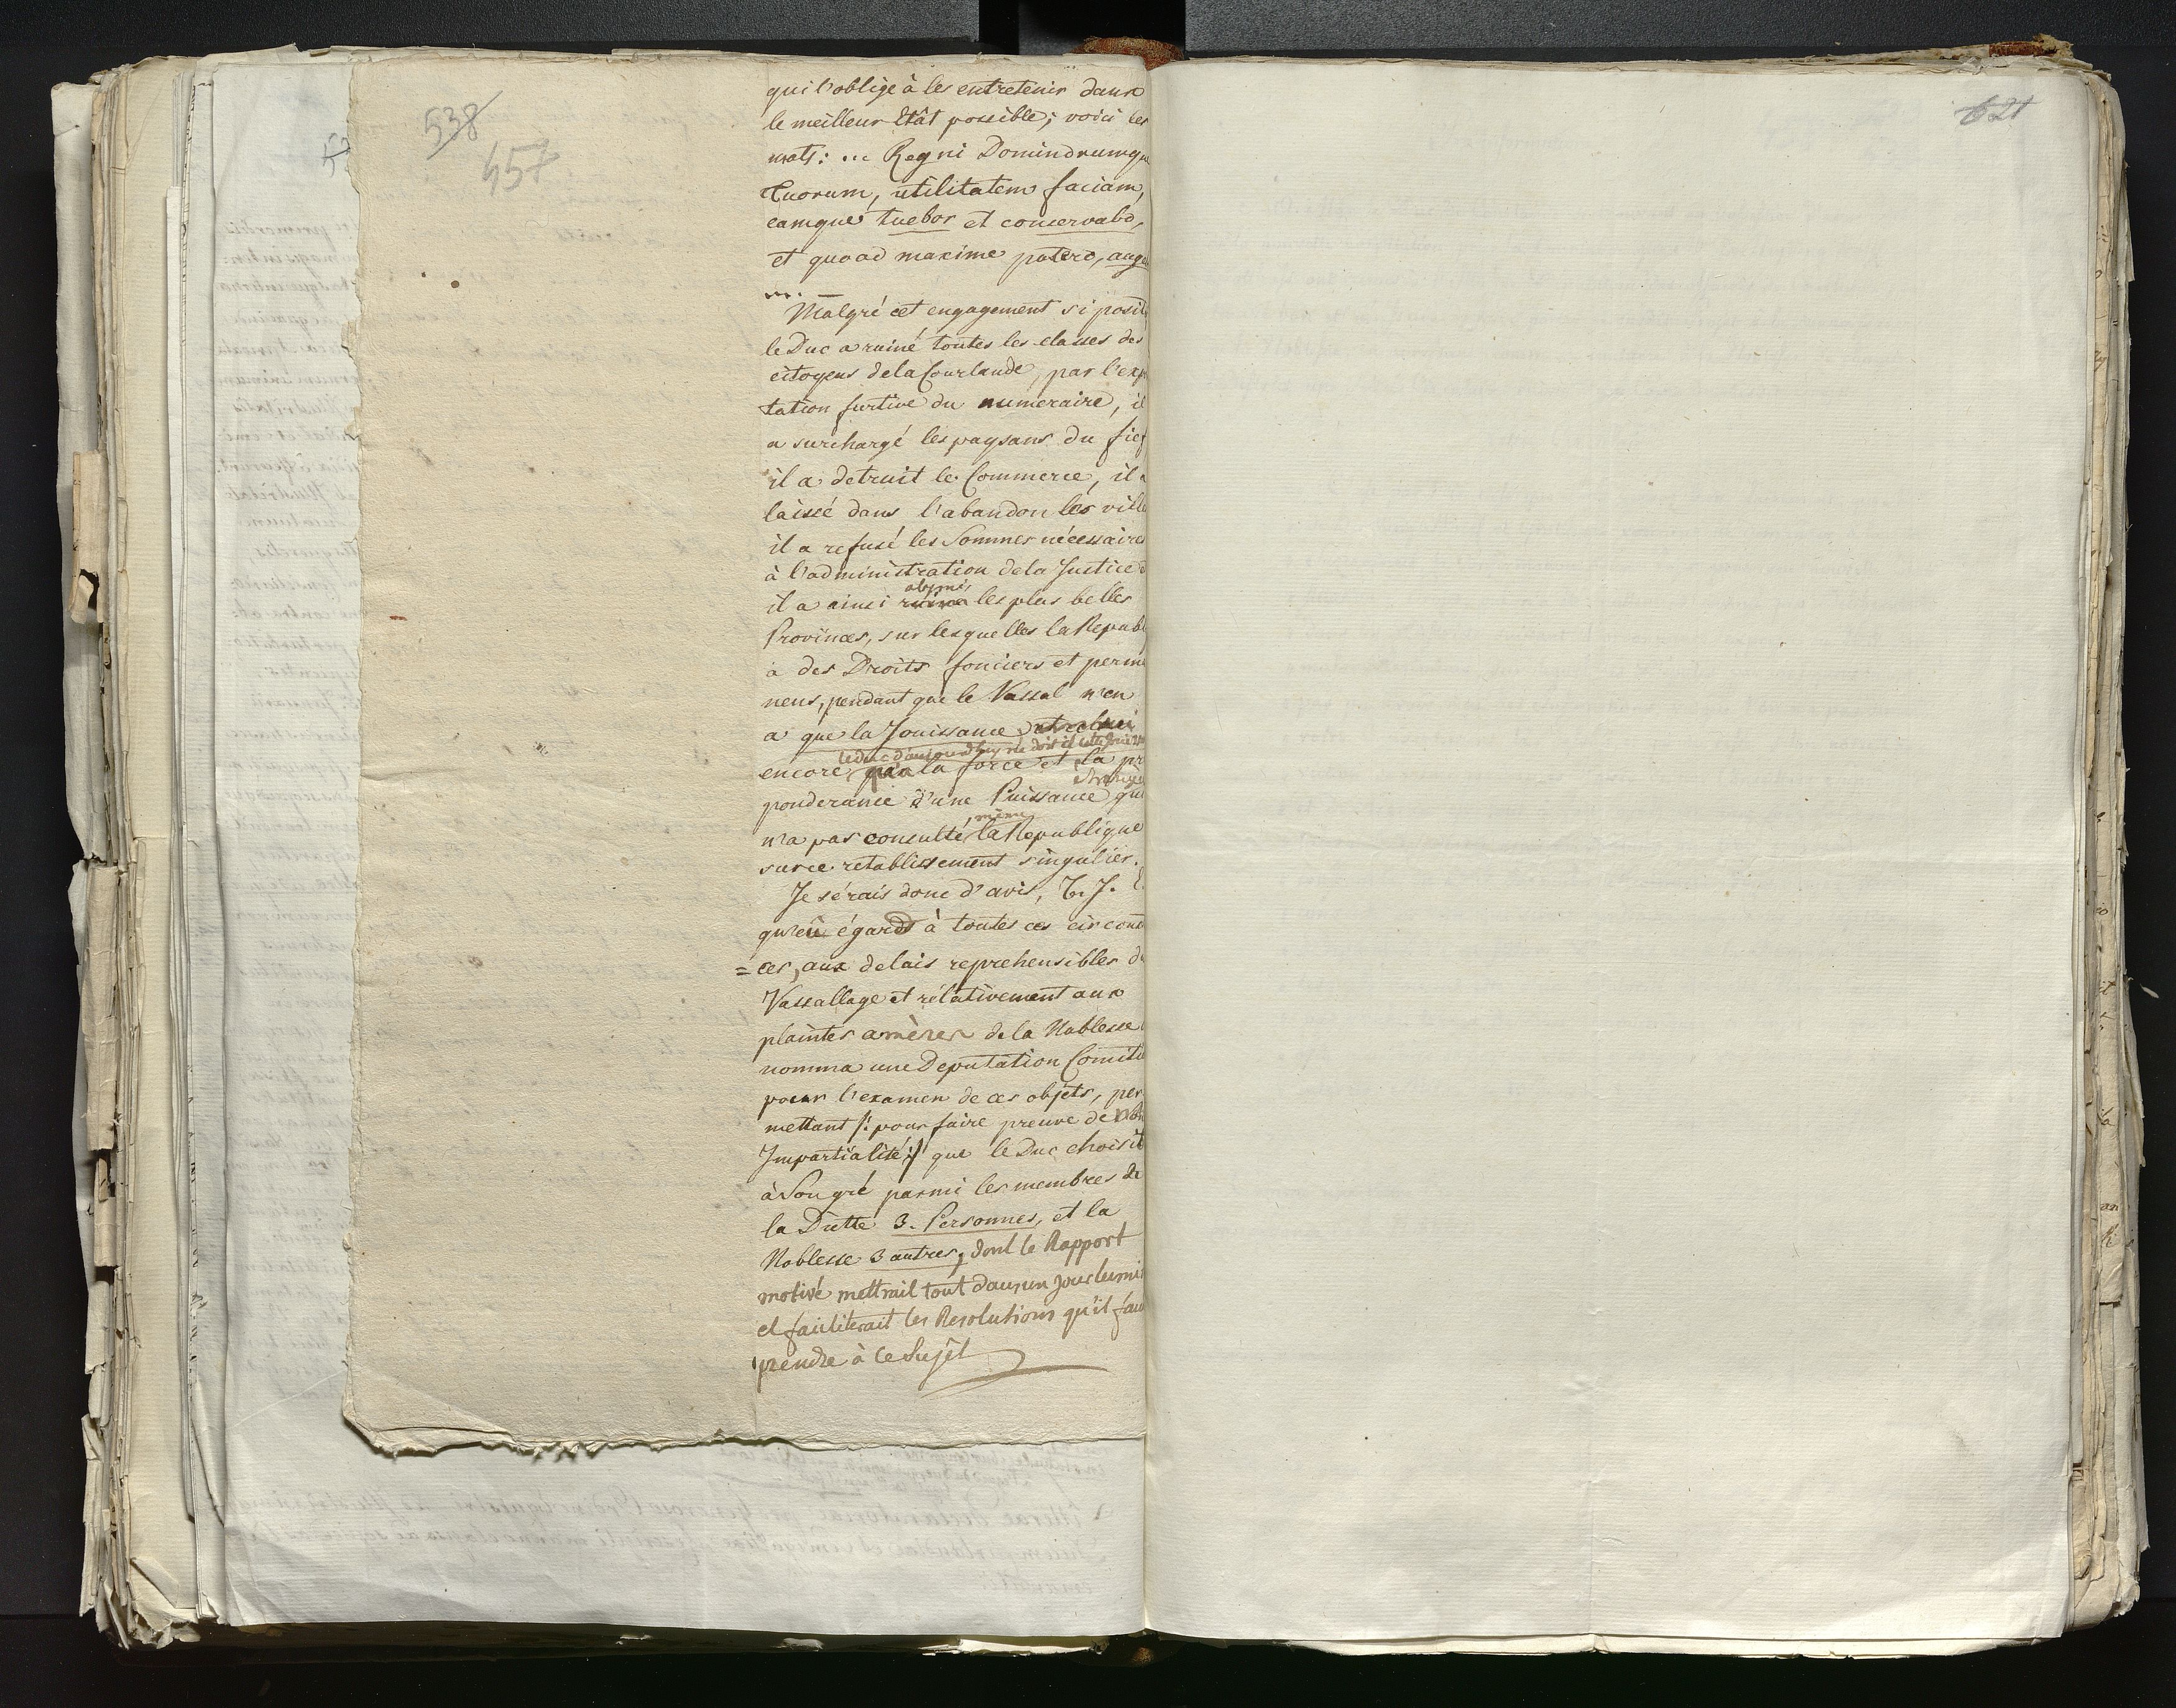 538
457
qui l'oblige à les entretenir dans
le meilleur Etât possible; voici les
mots: ... Regni Dominorumqu
Tuorum, utilitatem faciam,
eamque tuebor et conservabo,
et quoad maxime potero, auge
...
Malgré cet engagement si posit
le Duc a ruiné toutes les classes des
citoyens de la Courlande, par l'exp
tation furtive du numeraire, il
a surchargé les paysans du fief
il a detruit le Commerce, il a
laissé dans l'abandon les ville
il a refusé les Sommes nécessaires
à l'administration de la Justice
abymé
il a ainsi ruiné les plus belles
Provinces, sur lesquelles la Republ
a des Droits fonciers et perma
nens, pendant que le Vassal n'en
a que la Jouissance
le duc d'aujourdhuy ne doit il cette Jouiss
encore qu'a la force et la pr
etrangè
ponderance d'une Puissance qui
même
n'a pas consulté la Republique
sur ce retablissement singulier.
Je sérais donc d'avis, T. J.
qu'eû égard à toutes ces circons
= ces, aux delais reprehensibles du
Vassallage et rélativement aux
plaintes amères de la Noblesse
nomma une Deputation Comiti
pour l'examen de ces objéts, per
mettant /: pour faire preuve de
Impartialité :/ que le Duc choisit
à Son gré parmi les membres de
la Diette 3. Personnes, et la
Noblesse 3 autres, dont le Rapport
motivé mettrait tout dans un jour lumi
et faciliterait les Resolutions qu'il fau
prendre à ce Sujèt
621